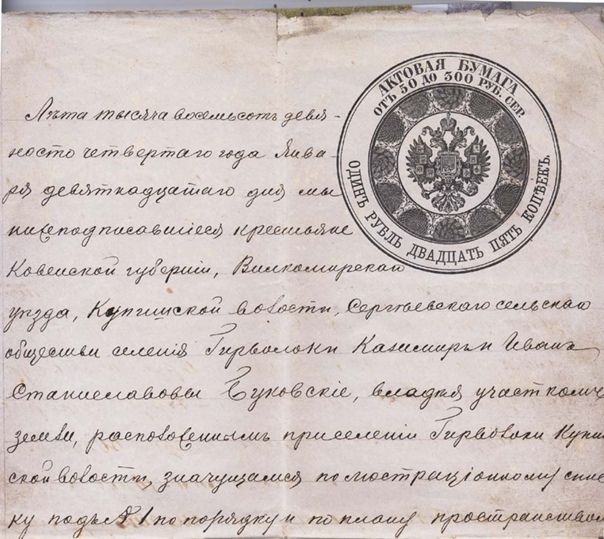 АКТОВАЯ БУМАГА
ОТЪ 50 ДО 300 РУБ. СЕР.
ОДИНЪ РУБЛЬ ДВАДЦАТЬ ПЯТЬ КОПѢЕКЪ.
Лѣта тысяча восемьсотъ девя-
носто четвертаго года Янва-
ря девятнадцатаго дня мы
нижеподписавшіеся крестьяне
Ковенской губерніи, Вилкомирскаго
уѣзда, Купишской волости, Сергѣевскаго сельскаго
общества селенія Гирволоки Казимиръ и Иванъ
Станиславовы Буковскіе, владѣя участкомъ
земли, расположеннымъ при селеніи Гирволоки Купиш
ской волости, значущамся по люстраціонному спис
ку подъ № 1 по порядку и по плану пространствомъ